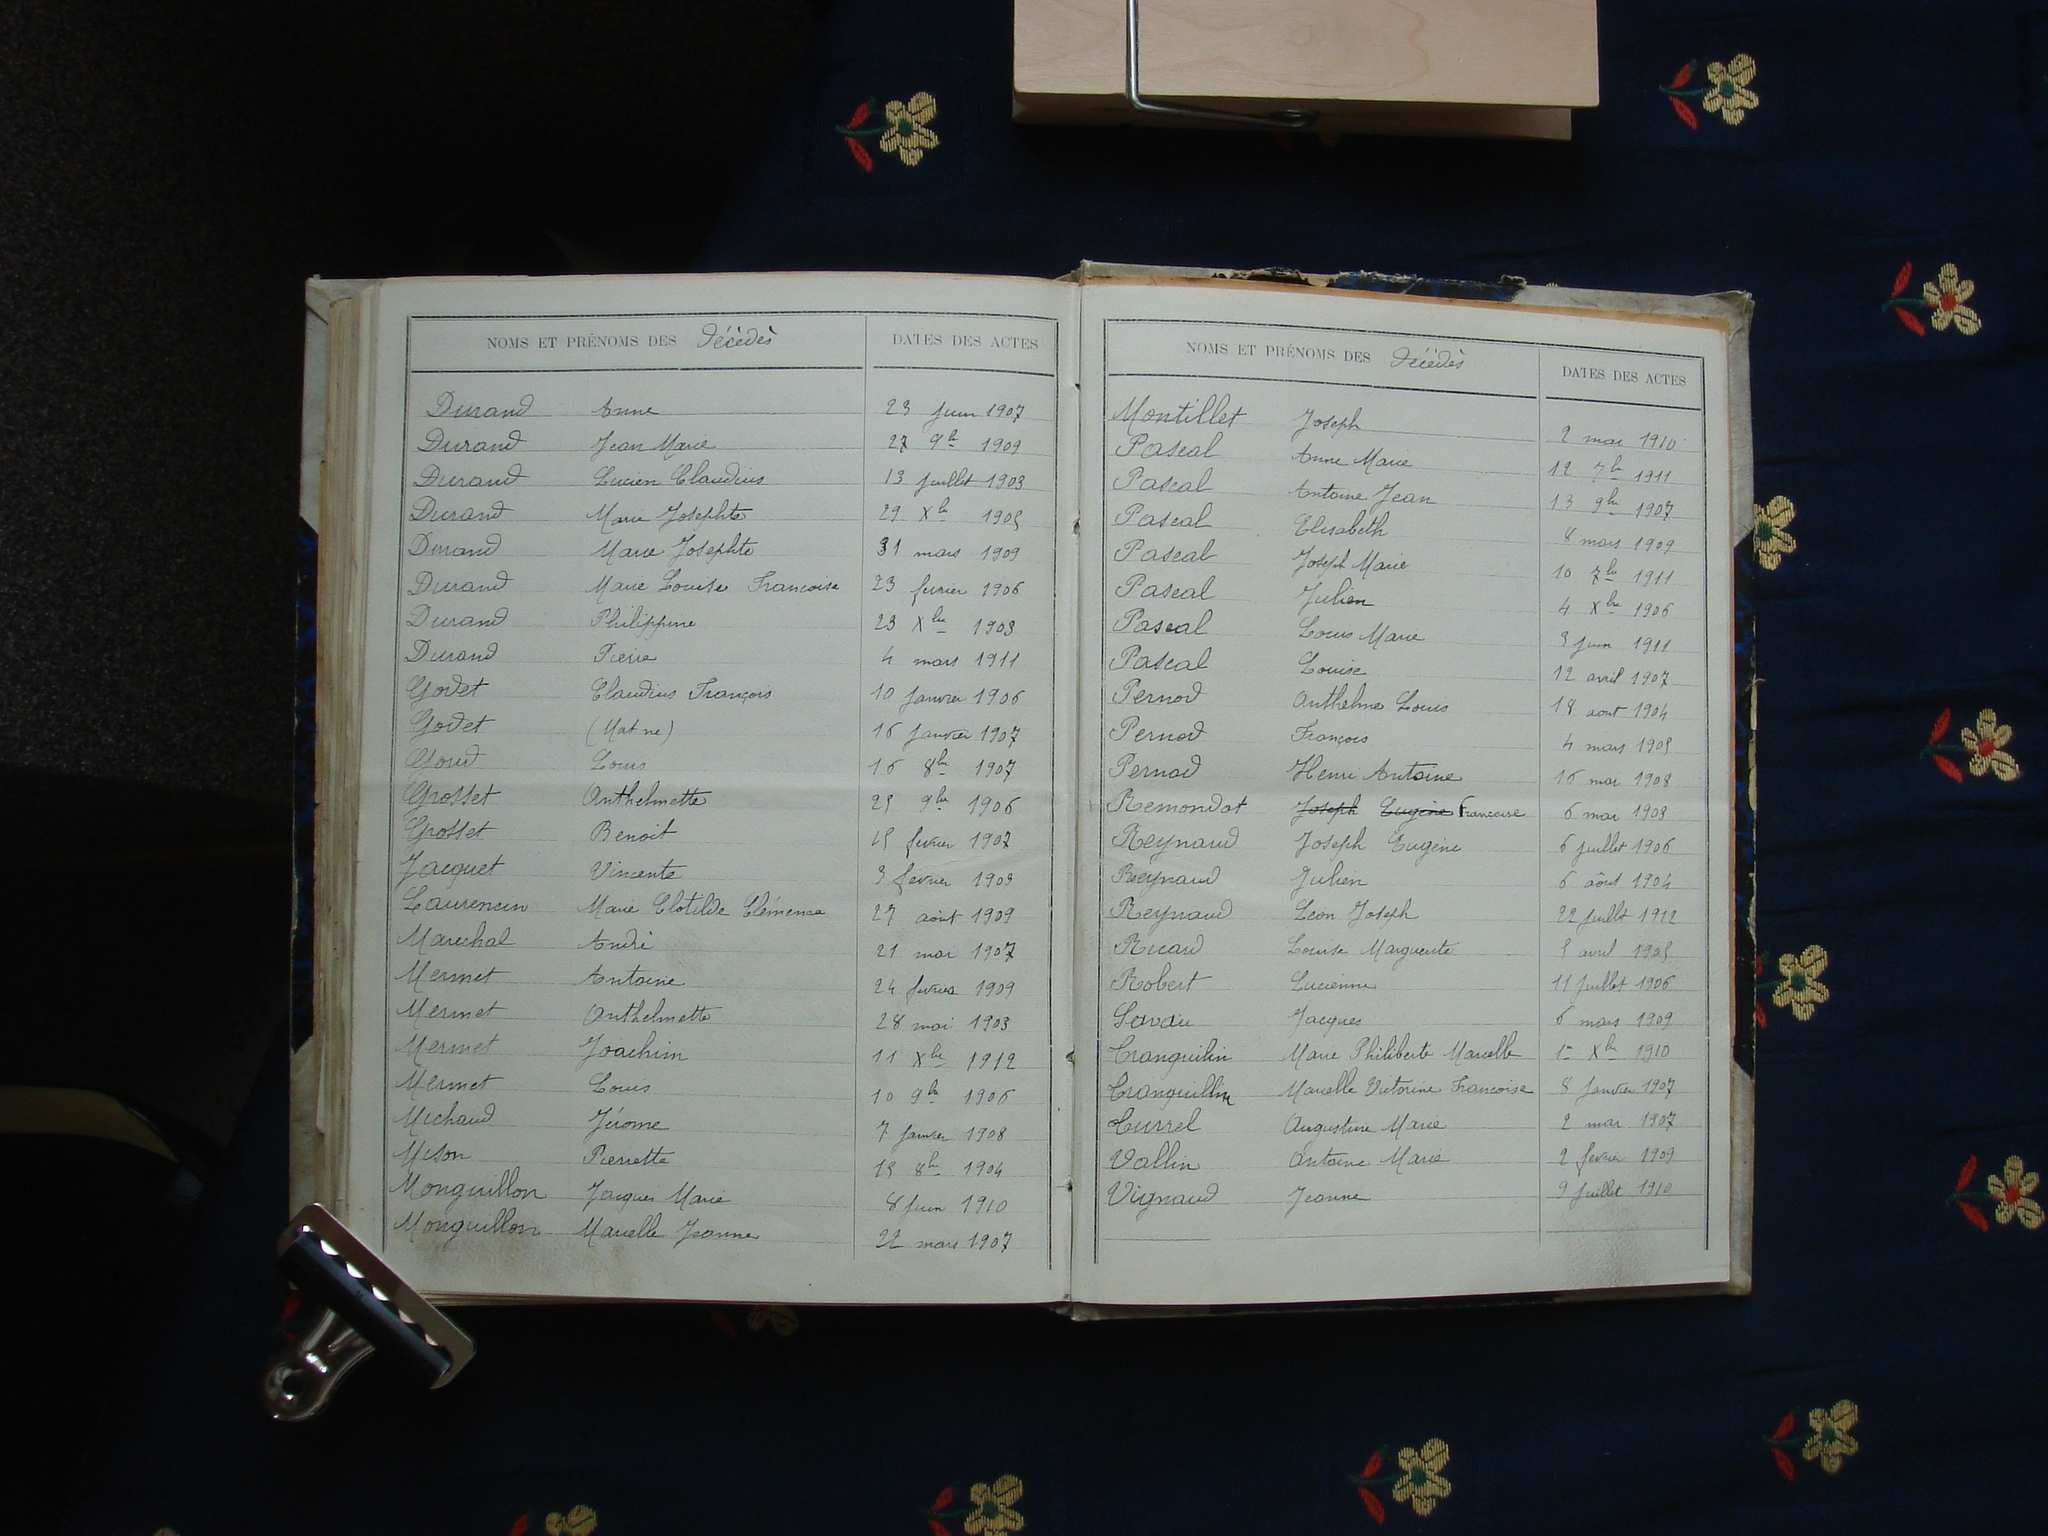 NOMS ET PRÉNOMS DES Décédés DATES DES ACTES
Durand Anne 23 juin 1907
Durand Jean Marie 27 9bre 1909
Durand Lucien Claudius 13 juillet 1903
Durand Marie Josephte 29 Xbre 1905
Durand Marie Josephte 31 mars 1909
Durand Marie Louise Francoise 23 fevrier 1906
Durand Philippine 23 Xbre 1903
Durand Pierre 4 mars 1911
Godet Claudius François 10 Janvier 1906
Godet (Mort né) 16 janvier 1907
Goud Louis 16 8bre 1907
Grosset Anthelmette 25 9bre 1906
Grosset Benoit 15 fevrier 1907
Jacquet Vincente 3 fevrier 1903
Laurencin Marie Clotilde Clémence 27 août 1909
Marechal André 21 mai 1907
Mermet Antoine 24 fevrier 1909
Mermet Anthelmette 28 mai 1903
Mermet Joachim 11 Xbre 1912
Mermet Louis 10 9bre 1906
Michaud Jérome 7 Janvier 1908
Mison Pierrette 15 8bre 1904
Monguillon Jacques Marie 8 juin 1910
Monguillon Marcelle Jeanne 22 mars 1907
NOMS ET PRÉNOMS DES Décédés DATES DES ACTES
Montillet Joseph 2 mai 1910
Pascal Anne Marie 12 7bre 1911
Pascal Antoine Jean 13 9bre 1907
Pascal Elisabeth 8 mars 1909
Pascal Joseph Marie 10 7bre 1911
Pascal Julien 4 Xbre 1906
Pascal Louis Marie 3 juin 1911
Pascal Louise 12 avril 1907
Pernod Anthelme Louis 18 aout 1904
Pernod François 4 mars 1905
Pernod Henri Antoine 16 mai 1908
Remondat Joseph Eugène Francoise 6 mai 1903
Reynaud Joseph Eugène 6 juillet 1906
Reynaud Julien 6 août 1904
Reynaud Léon Joseph 22 juillet 1912
Ruard Louise Marguerite 5 avril 1905
Robert Lucienne 11 Juillet 1906
Jacques 6 mars 1909
Tranquilin Marie Philiberte Marcelle 1er Xbre 1910
Tranquillin Marcelle Victorine Francoise 8 Janvier 1907
Turrel Augustine Marie 2 mai 1907
Vallin Antoine Marie 2 fevrier 1909
Vignaud Jeanne 9 Juillet 1910